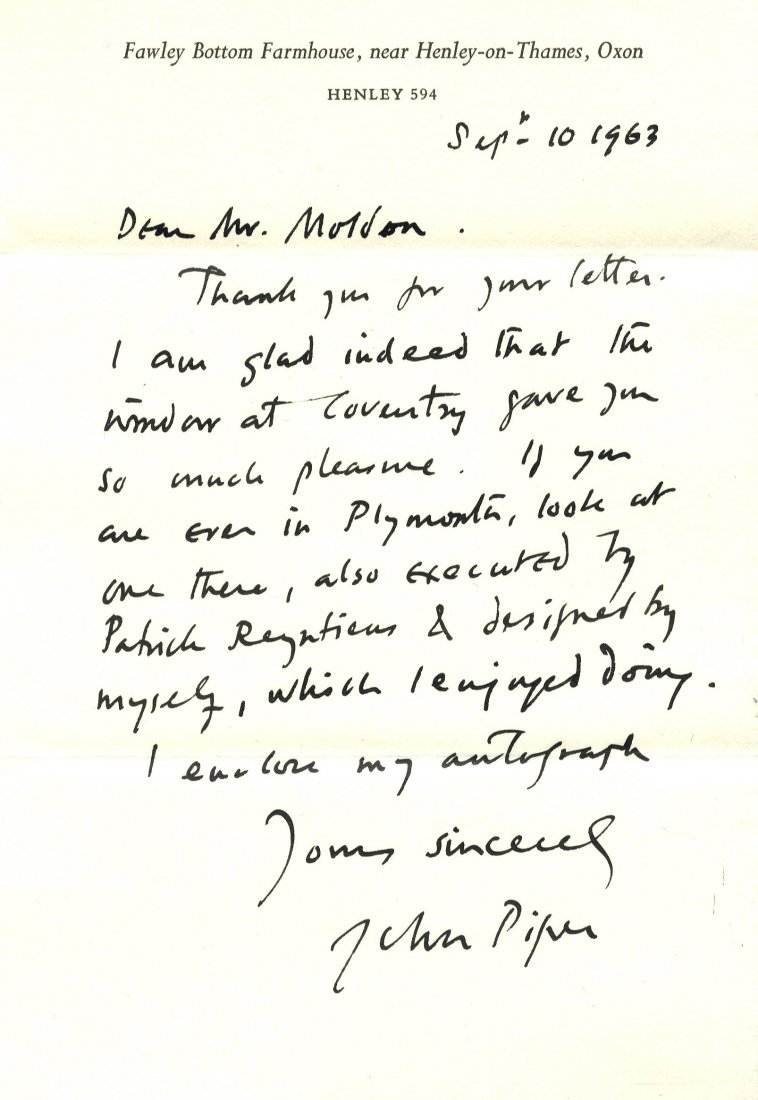 Fawley Bottom Farmhouse, near Henley-on-Thames, Oxon
HENLEY 594
Sepr 10 1963
Dear Mr. Moldon.
Thank you for your letter.
I am glad indeed that the
window at Coventry gave you
so much pleasure. If you
are ever in Plymouth, look at
one there, also executed by
Patrick Reyntiens & designed by
myself, which I enjoyed doing.
I enclose my autograph
Yours sincerely
John Piper